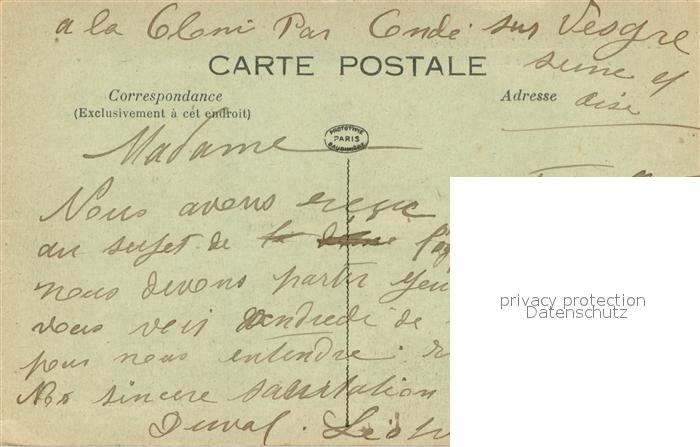 a la Cloni Par Condé sur Vesgre
CARTE POSTALE
seine et
oise
Correspondance
(Exclusivement à cet endroit)
Adresse
PROTOTYPIE
PARIS
Madame
Nous avons
au sujet de la
nous devons partir
vous veir vendredi de
pour nous entendre.
Nos sincere salutation
Duval.
privacy protection
Datenschutz